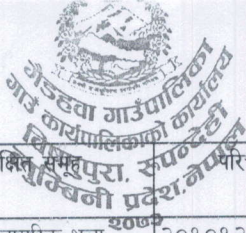 गैडहवा गाउँपालिका
गाउँ कार्यपालिकाको कार्यालय
बिष्णुपुरा, रुपन्देही
लुम्बिनी प्रदेश, नेपाल
२०७३
क्षित समूह
परि